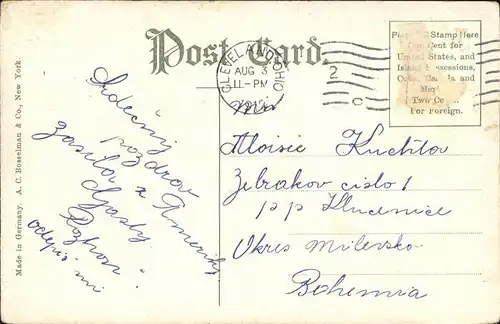 Post Card.
Made in Germany. A. C. Bosselman & Co., New York.
CLEVELAND, OHIO
AUG 3
11-PM
2
C
Place Stamp Here
One Cent for
United States, and
Island Possessions,
Cuba, Canada and
Mexico
Two Cents
For Foreign.
Srdečný
pozdrav
zasílá z Ameriky
Rozhon
odepiš mi
Aloisie Kuchťov
Žebrakov cislo 1
p p Klucenice
Okres Milevsko
Bohemia